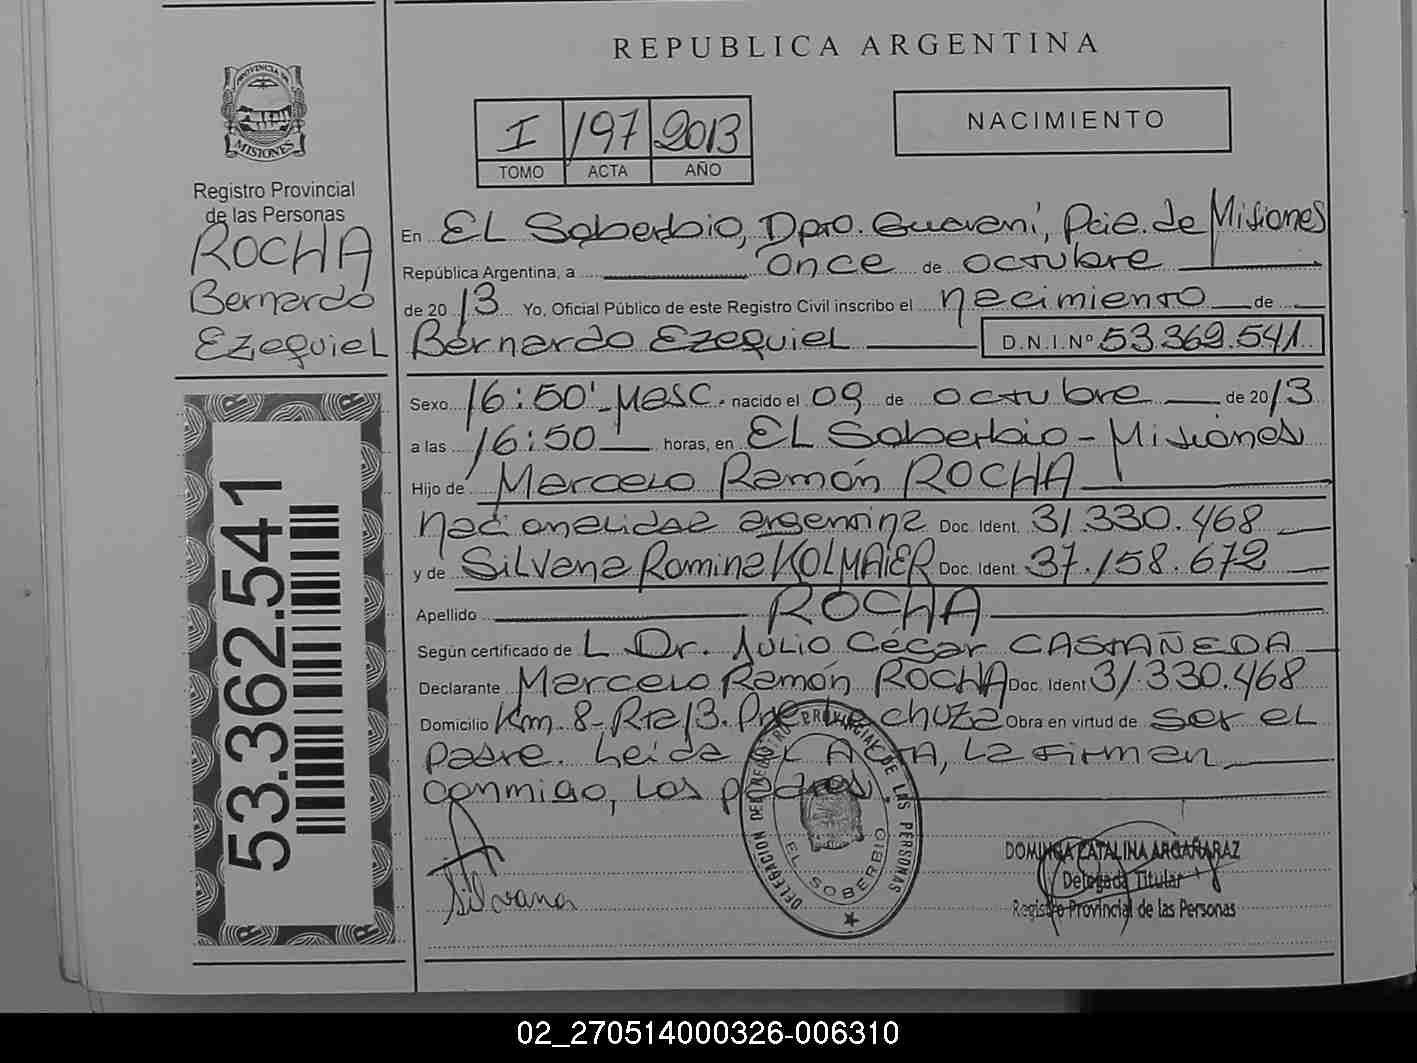 REPUBLICA ARGENTINA
PROVINCIA DE
MISIONES
Registro Provincial
de las Personas
ROCHA
Bernardo
Ezequiel
53.362.541
I 197 2013
TOMO ACTA AÑO
NACIMIENTO
En EL Soberbio, Dpto. Guaraní, Pcia. de Misiones
República Argentina, a once de octubre
de 2013 Yo, Oficial Público de este Registro Civil inscribo el nacimiento de
Bernardo Ezequiel D.N.I.Nº 53.362.541
Sexo 16:50'- Masc. nacido el 09 de octubre de 2013
a las 16:50 horas, en EL Soberbio - Misiones
Hijo de Marcelo Ramón ROCHA
nacionalidad argentina Doc. Ident. 31.330.468
y de Silvana Romina KOLMAIER Doc. Ident. 37.158.672
Apellido ROCHA
Según certificado de L Dr. Julio César CASTAÑEDA
Declarante Marcelo Ramón ROCHA Doc. Ident 31.330.468
Domicilio Km 8 - Rta 13. Pje La chuza Obra en virtud de ser el
padre. Leída el ACTA, La firman
conmigo, los padres.
Silvana
DELEGACION DEL REGISTRO PROVINCIAL DE LAS PERSONAS
EL SOBERBIO
DOMINGA CATALINA ARGAÑARAZ
Delegada Titular
Registro Provincial de las Personas
02_270514000326-006310